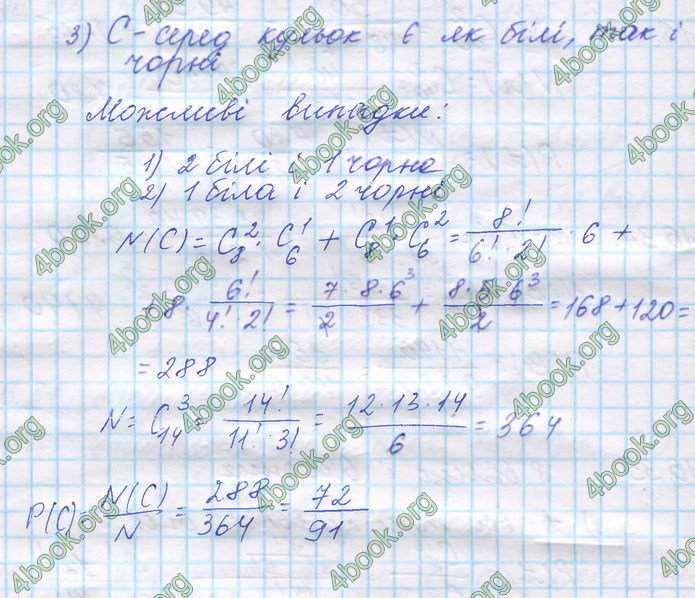 3) C - серед кульок є як білі, так і
чорні
Можливі випадки:
1) 2 білі і 1 чорна
2) 1 біла і 2 чорні
N(C) = C₈² · C₆¹ + C₈¹ · C₆² = 8!/(6! · 2!) · 6 +
+ 8 · 6!/(4! · 2!) = (7 · 8 · 6³)/2 + (8 · 5 · 6³)/2 = 168 + 120 =
= 288
N = C₁₄³ = 14!/(11! · 3!) = (12 · 13 · 14)/6 = 364
P(C) = N(C)/N = 288/364 = 72/91
4book.org